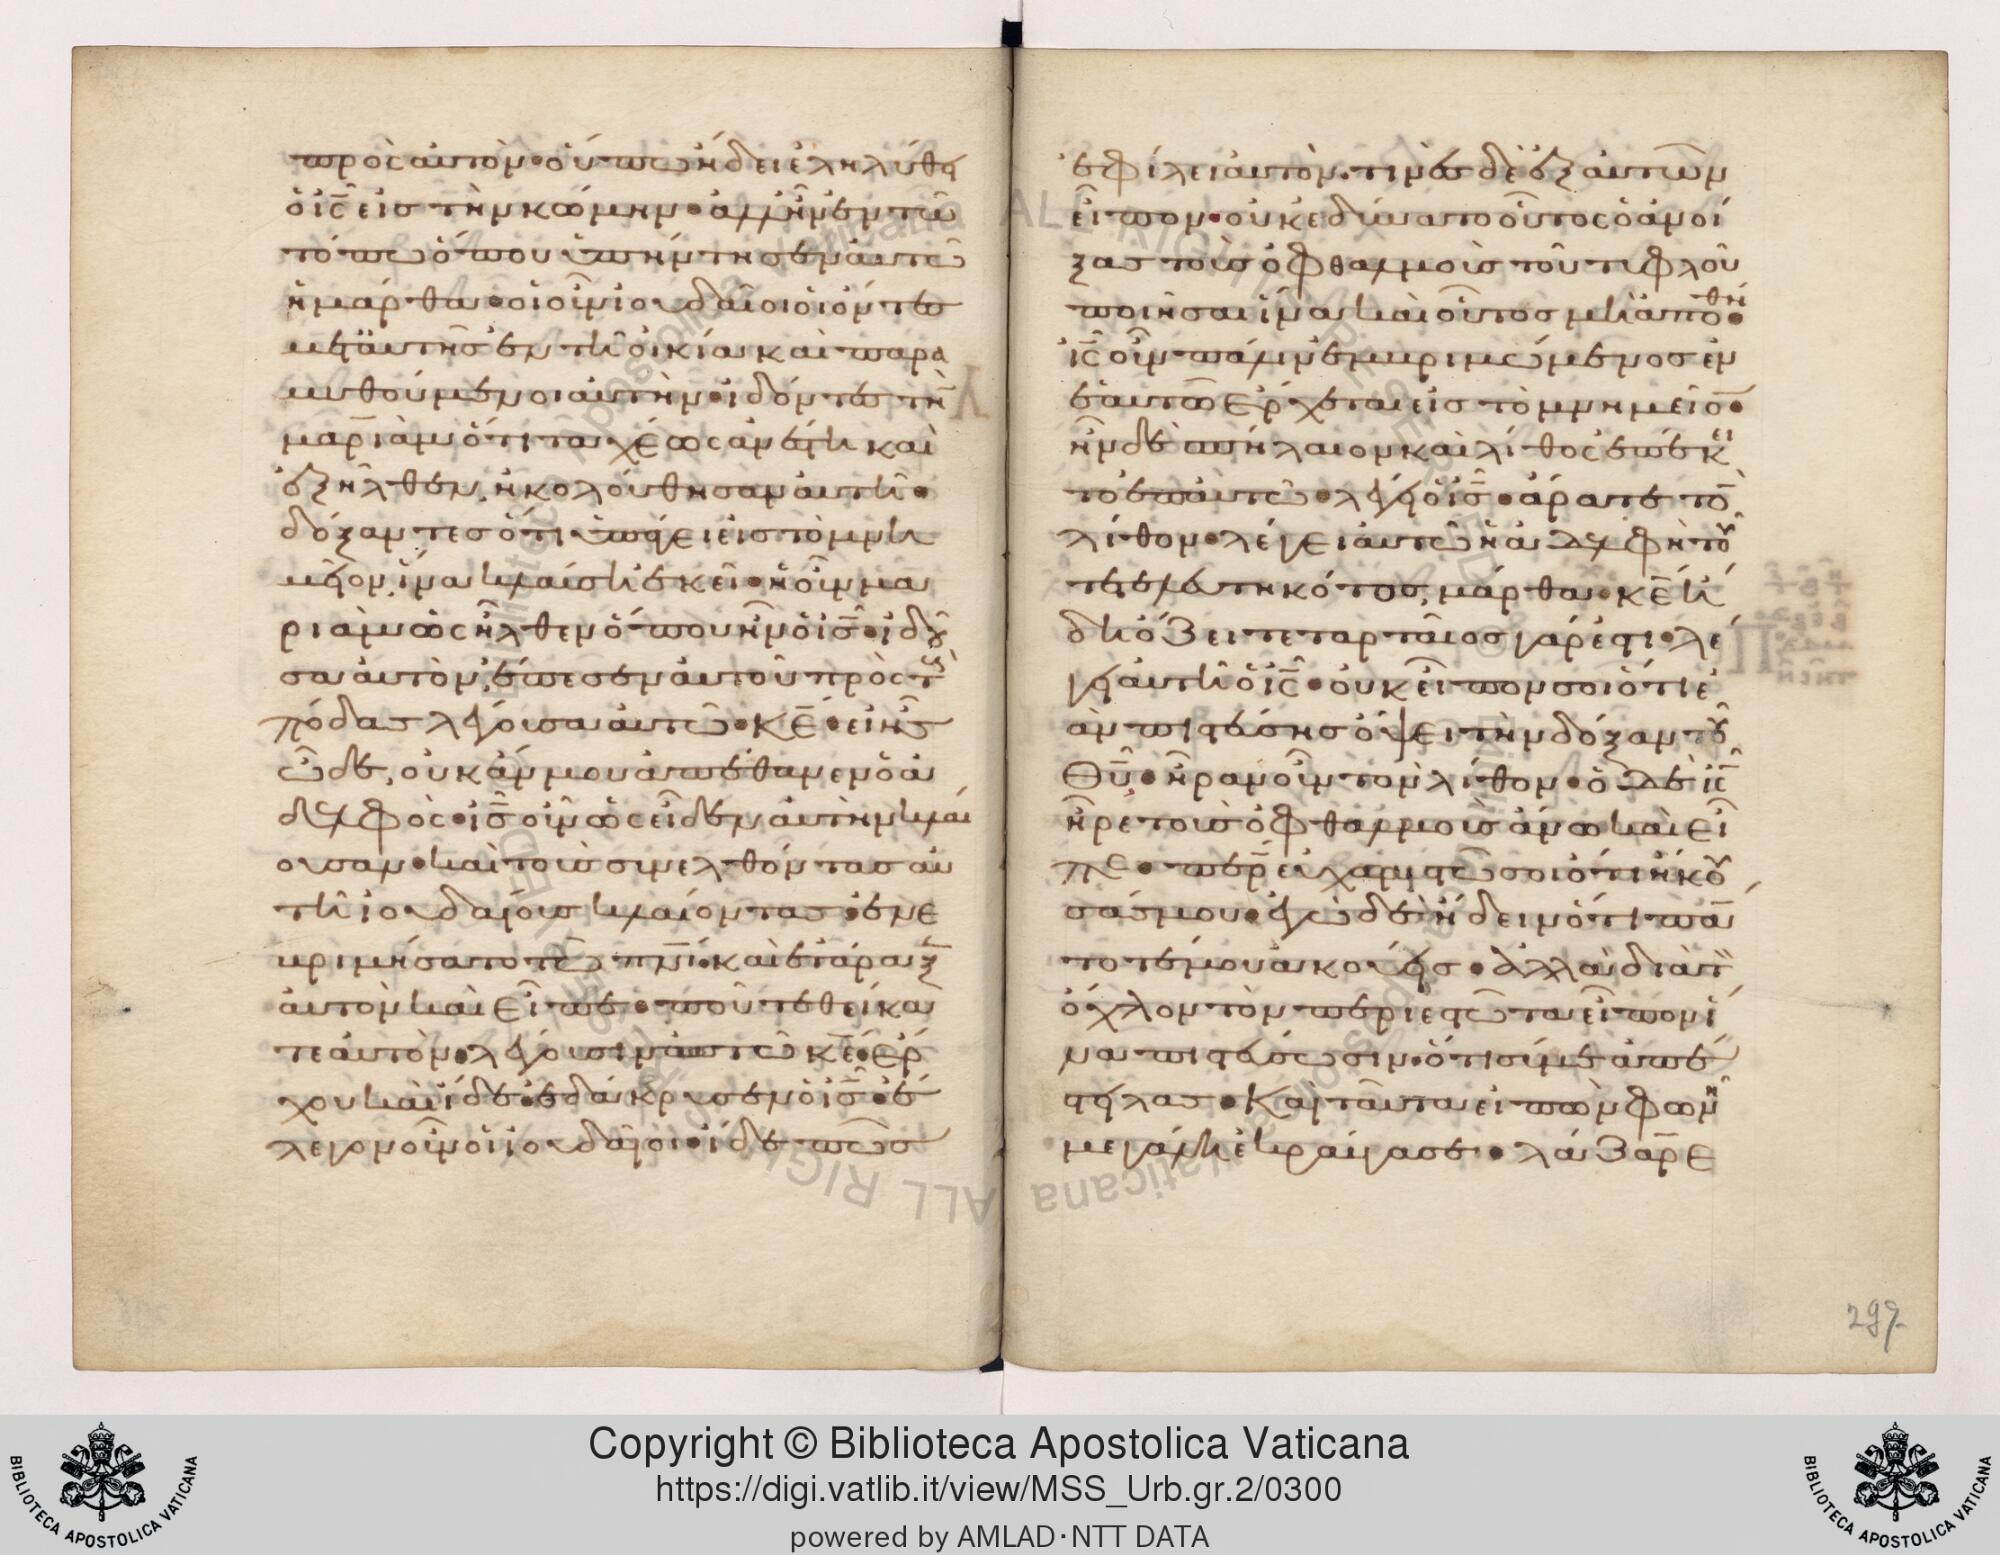 πρὸς αὐτὸν· οὔπω δὲ ἐληλύθει
ὁ ις εἰς τὴν κώμην· ἀλλ' ἦν ἐν τῶ
τόπω ὅπου ὑπήντησεν αὐτῶ
ἡ μάρθα· οἱ οὖν ἰουδαῖοι οἱ ὄντες
μετ' αὐτῆς ἐν τῆ οἰκία καὶ παρα
μυθούμενοι αὐτήν· ἰδόντες τὴν
μαριὰμ ὅτι ταχέως ἀνέστη καὶ
ἐξῆλθεν, ἠκολούθησαν αὐτῆ·
δόξαντες ὅτι ὑπάγει εἰς τὸ μνη
μεῖον, ἵνα κλαύση ἐκεῖ· ἡ οὖν μα
ριὰμ ὡς ἦλθεν ὅπου ἦν ὁ ις· ἰδοῦ
σα αὐτὸν, ἔπεσεν αὐτοῦ πρὸς τοὺς
πόδας λέγουσα αὐτῶ· κε· εἰ ἦς
ὧδε, οὐκ ἄν μου ἀπέθανεν ὁ ἀ
δελφὸς· ις οὖν ὡς εἶδεν αὐτὴν κλαί
ουσαν· καὶ τοὺς συνελθόντας αὐ
τῆ ἰουδαίους κλαίοντας· ἐνε
βριμήσατο τῶ πνι· καὶ ἐτάραξ
αὐτὸν καὶ εἶπε· ποῦ τεθείκα
τε αὐτὸν· λέγουσιν αὐτῶ κε· ἔρ
χου καὶ ἴδε· ἐδάκρυσεν ὁ ις· ἔ
λεγον οὖν οἱ ἰουδαῖοι· ἴδε πῶς
ἐφίλει αὐτὸν. τινὲς δὲ ἐξ αὐτῶν
εἶπον· οὐκ ἐδύνατο οὗτος ὁ ἀνοί
ξας τοὺς ὀφθαλμοὺς τοῦ τυφλοῦ
ποιῆσαι ἵνα καὶ οὗτος μὴ ἀποθνή·
ις οὖν πάλιν ἐμβριμώμενος ἐν
ἑαυτῶ ἔρχεται εἰς τὸ μνημεῖον·
ἦν δὲ σπήλαιον καὶ λίθος ἐπέκει
το ἐπ' αὐτῶ· λέγει ὁ ις· ἄρατε τὸν
λίθον· λέγει αὐτῶ ἡ ἀδελφὴ τοῦ
τετελευτηκότος, μάρθα· κε ἤ
δη ὄζει τεταρταῖος γάρ ἐστι· λέ
γει αὐτῆ ὁ ις· οὐκ εἶπόν σοι ὅτι ἐ
ὰν πιστεύσης ὄψει τὴν δόξαν τοῦ
θυ· ἦραν οὖν τὸν λίθον· ὁ δὲ ις
ἦρε τοὺς ὀφθαλμοὺς ἄνω καὶ εἶ
πε· περ εὐχαριστῶ σοι ὅτι ἤκου
σάς μου· ἐγὼ δὲ ἤδειν ὅτι πάν
τοτέ μου ἀκούεις· ἀλλὰ διὰ τὸν
ὄχλον τὸν περιεστῶτα εἶπον ἵ
να πιστεύσωσιν· ὅτι σύ με ἀπέ
στειλας· καὶ ταῦτα εἰπὼν φωνῆ
μεγάλη ἐκραύγασε· λάζαρε
297
Copyright © Biblioteca Apostolica Vaticana
https://digi.vatlib.it/view/MSS_Urb.gr.2/0300
powered by AMLAD·NTT DATA
BIBLIOTECA APOSTOLICA VATICANA
BIBLIOTECA APOSTOLICA VATICANA